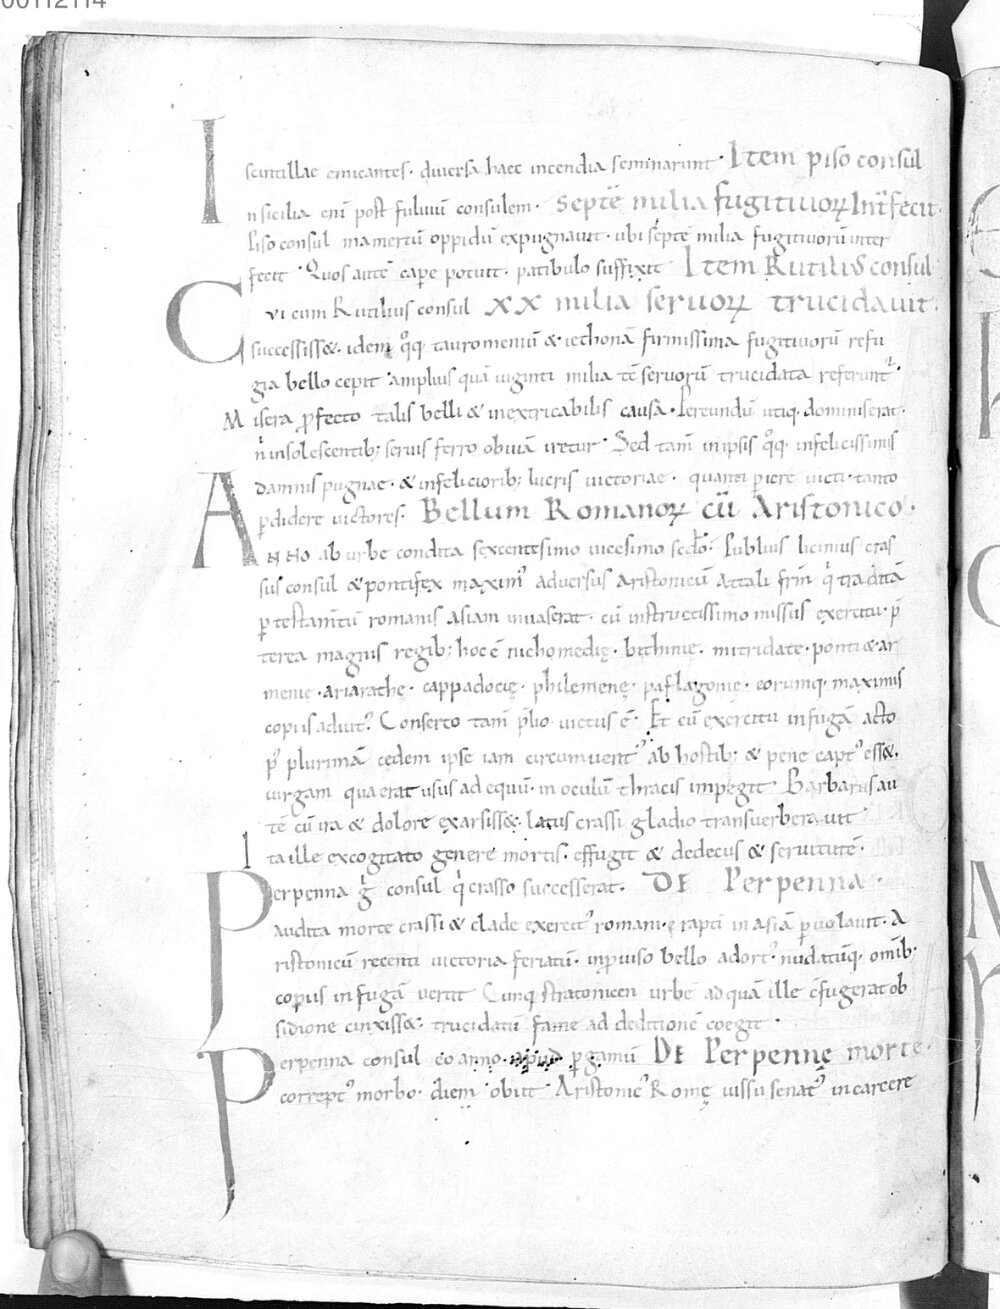 00112114
scintillae emicantes · diversa haec incendia seminarunt · Item piso consul
In sicilia eni post fuluiū consulem · septē milia fugitiuoꝝ Int̄fecit
Piso consul mamertū oppidū expugnauit · ubi septē milia fugitiuorū inter
fecit · Quos autē cape potuit · patibulo suffixit Item Rutilius consul
Cvi cum Rutilius consul XX milia seruoꝝ trucidauit ·
successiss& · idem q̊q tauromeniū & iethonā firmissima fugitiuorū refu
gia bello cepit · amplius quā uiginti milia tē seruorū trucidata referunt̉ ·
Misera ꝓfecto talis belli & inextricabilis causa · Pereundū utiq · dominis erat ·
n̄ insolescentib; seruis ferro obuiā iretur · Sed tam̄ in ipsis q̊q · infelicissimis
damnis pugnae · & infeliciorib; lucris uictoriae · quanti ꝑiere uicti · tanto
ꝑdidere uictores · Bellum Romanoꝝ cū Aristonico ·
ANNO ab urbe condita sexcentesimo uicesimo sec̄do · Publius licinius cras
sus consul & pontifex maxim᾽ aduersus aristonicū attali frm̄ q̇ traditā
ꝑ testam̄tū romanis asiam inuaserat · cū instructissimo missus exercitu · p̄
terea magnis regib; hoc ē nichomedię · bithinię · mitridate · ponti & ar
menię · ariarathę · cappadocię · philemenę · paflagonię · eorumq · maximis
copiis adiut᾽ · Conserto tam̄ p̄lio uictus ē · Et cū exercitu in fugā acto
p᾽ plurimā cedem ipse iam circumuent᾽ ab hostib; & pene capt᾽ ess& ·
uirgam qua erat usus ad equū · in oculū thracis impegit Barbarus au
tē cū ira & dolore exarsiss& · latus crassi gladio transuerberauit
Ita ille excogitato genere mortis · effugit & dedecus & seruitutē ·
Perpenna g̊ consul q̇ crasso successerat · DE Perpenna ·
audita morte crassi & clade exercit᾽ romani · ę rapti in asiā ꝑuolauit · A
ristonicū recenti uictoria feriatū · inꝓuiso bello adort᾽ · nudatūq · om̄ib;
copiis in fugā uertit Cunq stratonicen urbē ad quā ille c̄fugerat ob
sidione cinxiss& · trucidatū fame ad deditionē coegit ·
Perpenna consul eo anno · apud ꝑgamū DE Perpennę morte ·
corrept᾽ morbo · diem obiit Aristonic᾽ Romę iussu senat᾽ in carcere